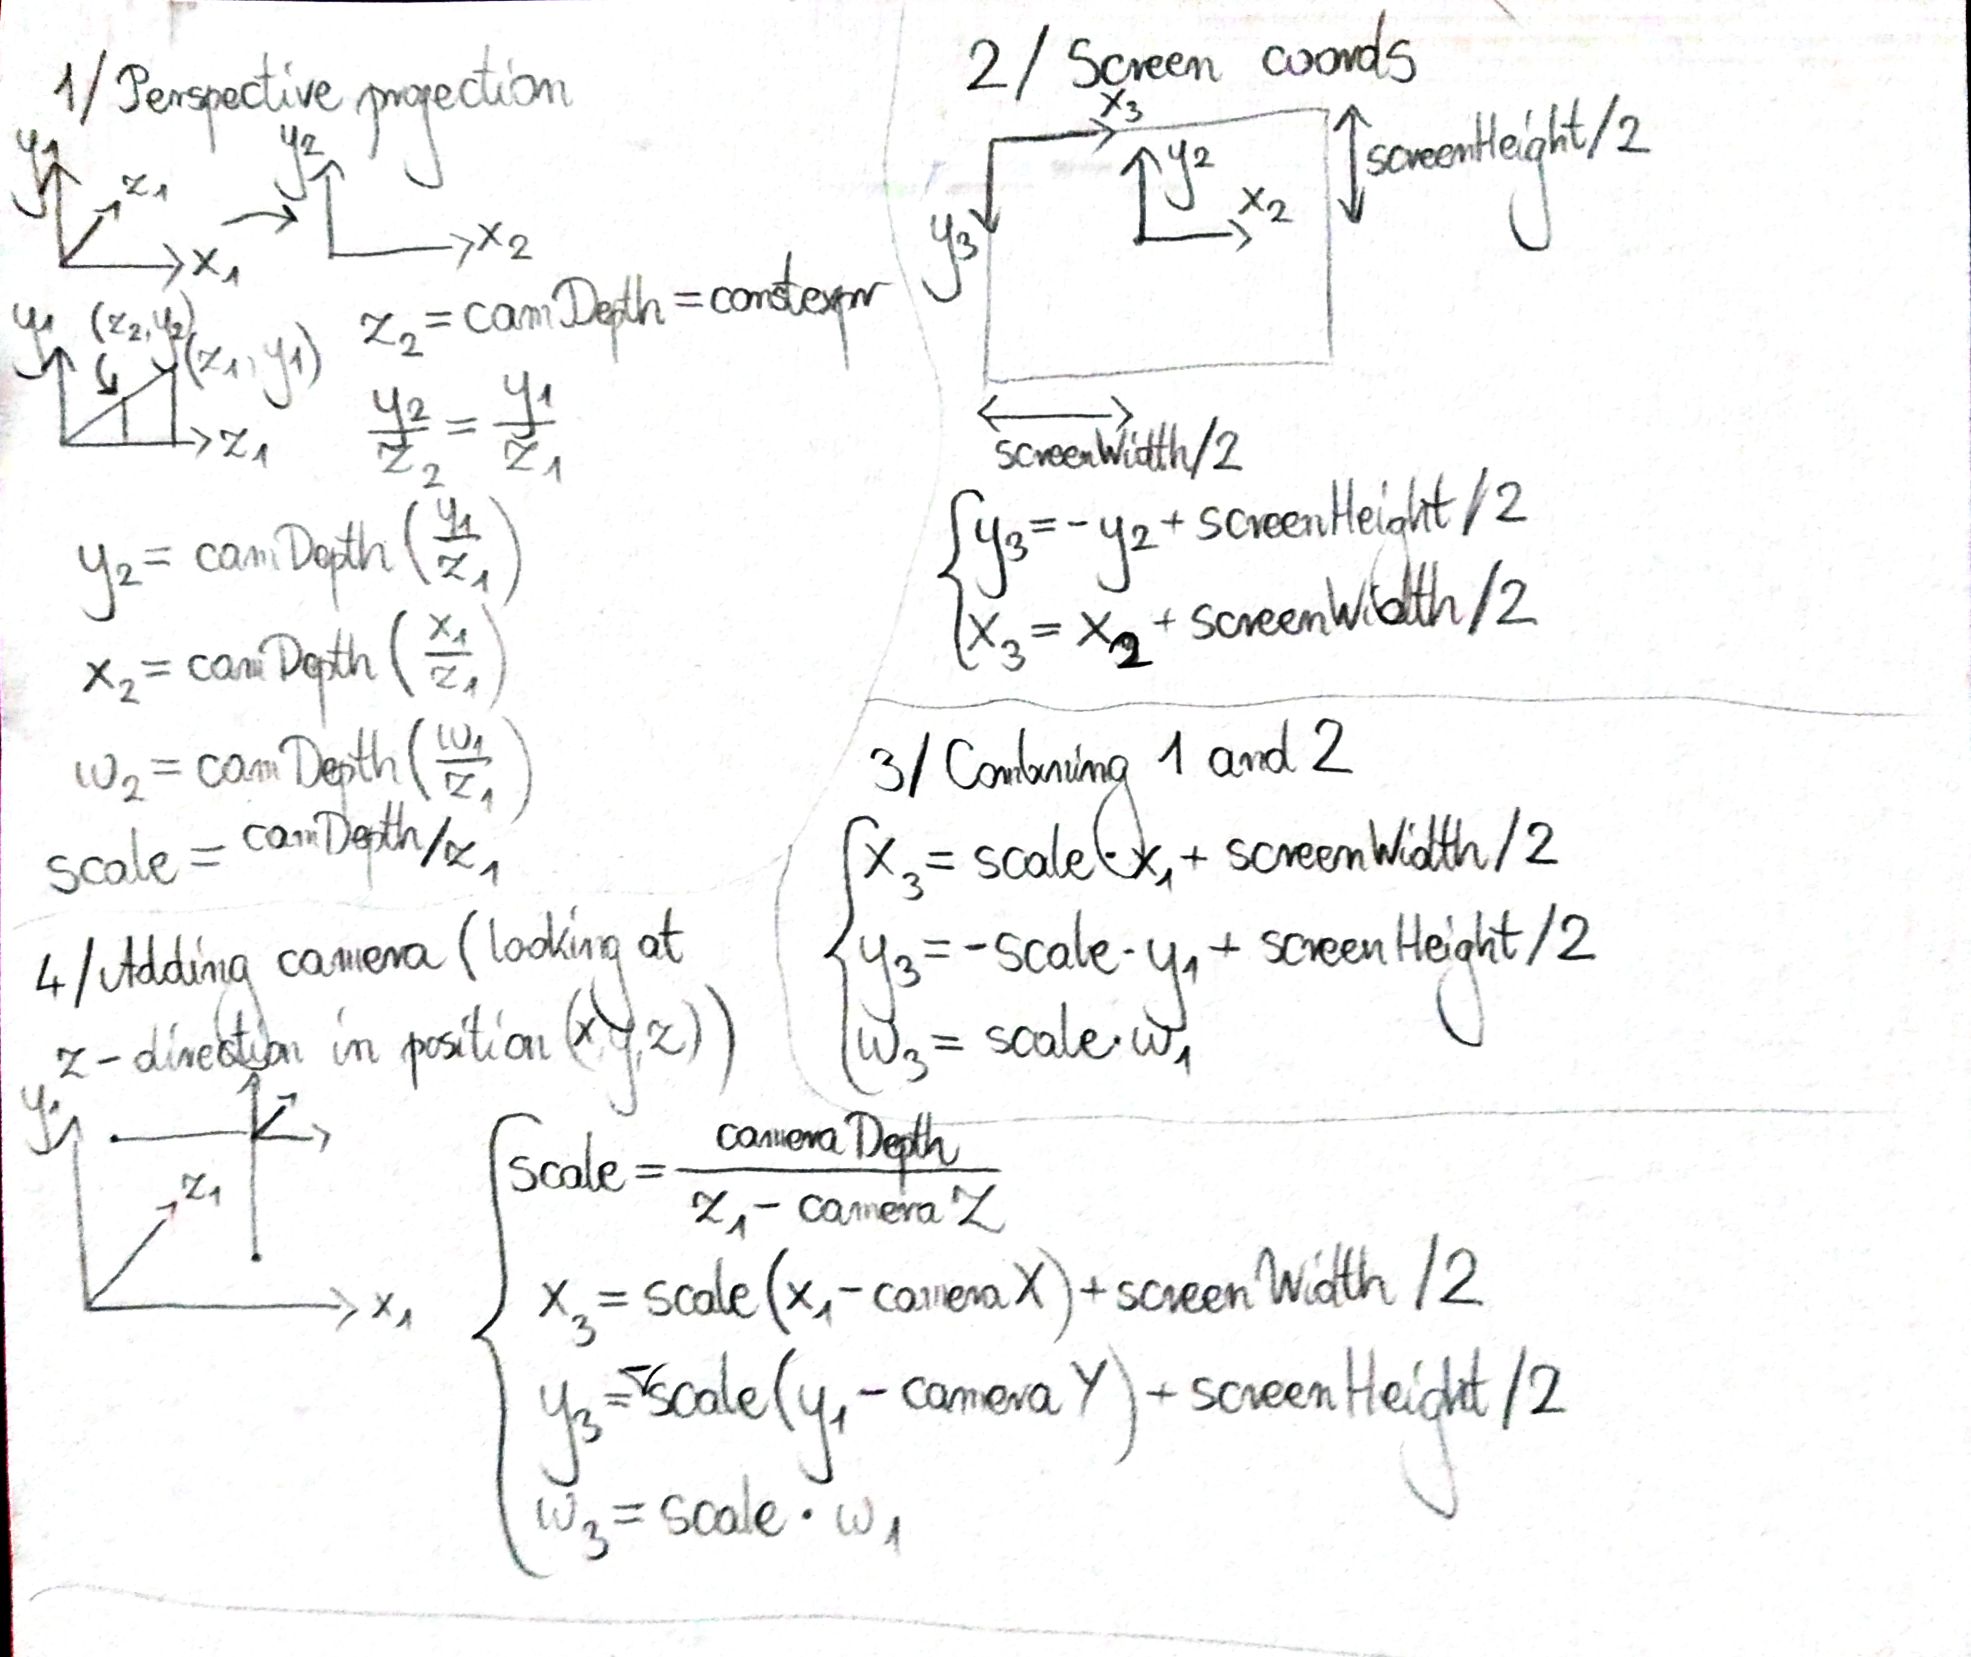 1/ Perspective projection
y1
z1
x1
y2
x2
y1
(z2, y2)
(z1, y1)
z1
z2 = camDepth = constexpr
y2/z2 = y1/z1
y2 = camDepth (y1/z1)
x2 = camDepth (x1/z1)
w2 = camDepth (w1/z1)
scale = camDepth/z1
2/ Screen coords
x3
y3
y2
x2
screenHeight/2
screenWidth/2
y3 = -y2 + screenHeight/2
x3 = x2 + screenWidth/2
3/ Combining 1 and 2
x3 = scale · x1 + screenWidth/2
y3 = -scale · y1 + screenHeight/2
w3 = scale · w1
4/ Adding camera (looking at
z-direction in position (x,y,z))
y1
z1
x1
scale = cameraDepth / z1 - cameraZ
x3 = scale (x1 - cameraX) + screenWidth/2
y3 = -scale (y1 - cameraY) + screenHeight/2
w3 = scale · w1